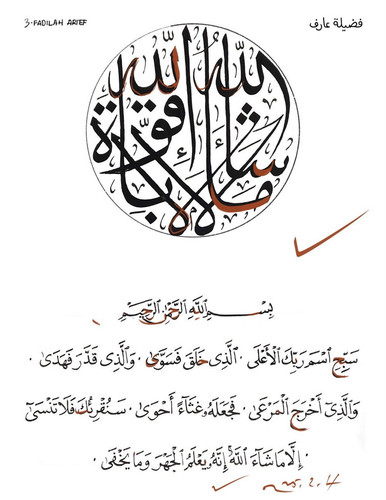 3. FADILAH ARIEF فضيلة عارف
ما شاء الله لا قوة إلا بالله
بِسْمِ ٱللَّهِ ٱلرَّحْمَٰنِ ٱلرَّحِيمِ
سَبِّحِ ٱسْمَ رَبِّكَ ٱلْأَعْلَى . ٱلَّذِى خَلَقَ فَسَوَّىٰ . وَٱلَّذِى قَدَّرَ فَهَدَىٰ .
وَٱلَّذِىٓ أَخْرَجَ ٱلْمَرْعَىٰ . فَجَعَلَهُۥ غُثَآءً أَحْوَىٰ . سَنُقْرِئُكَ فَلَا تَنسَىٰٓ
. إِلَّا مَا شَآءَ ٱللَّهُ ۚ إِنَّهُۥ يَعْلَمُ ٱلْجَهْرَ وَمَا يَخْفَىٰ .